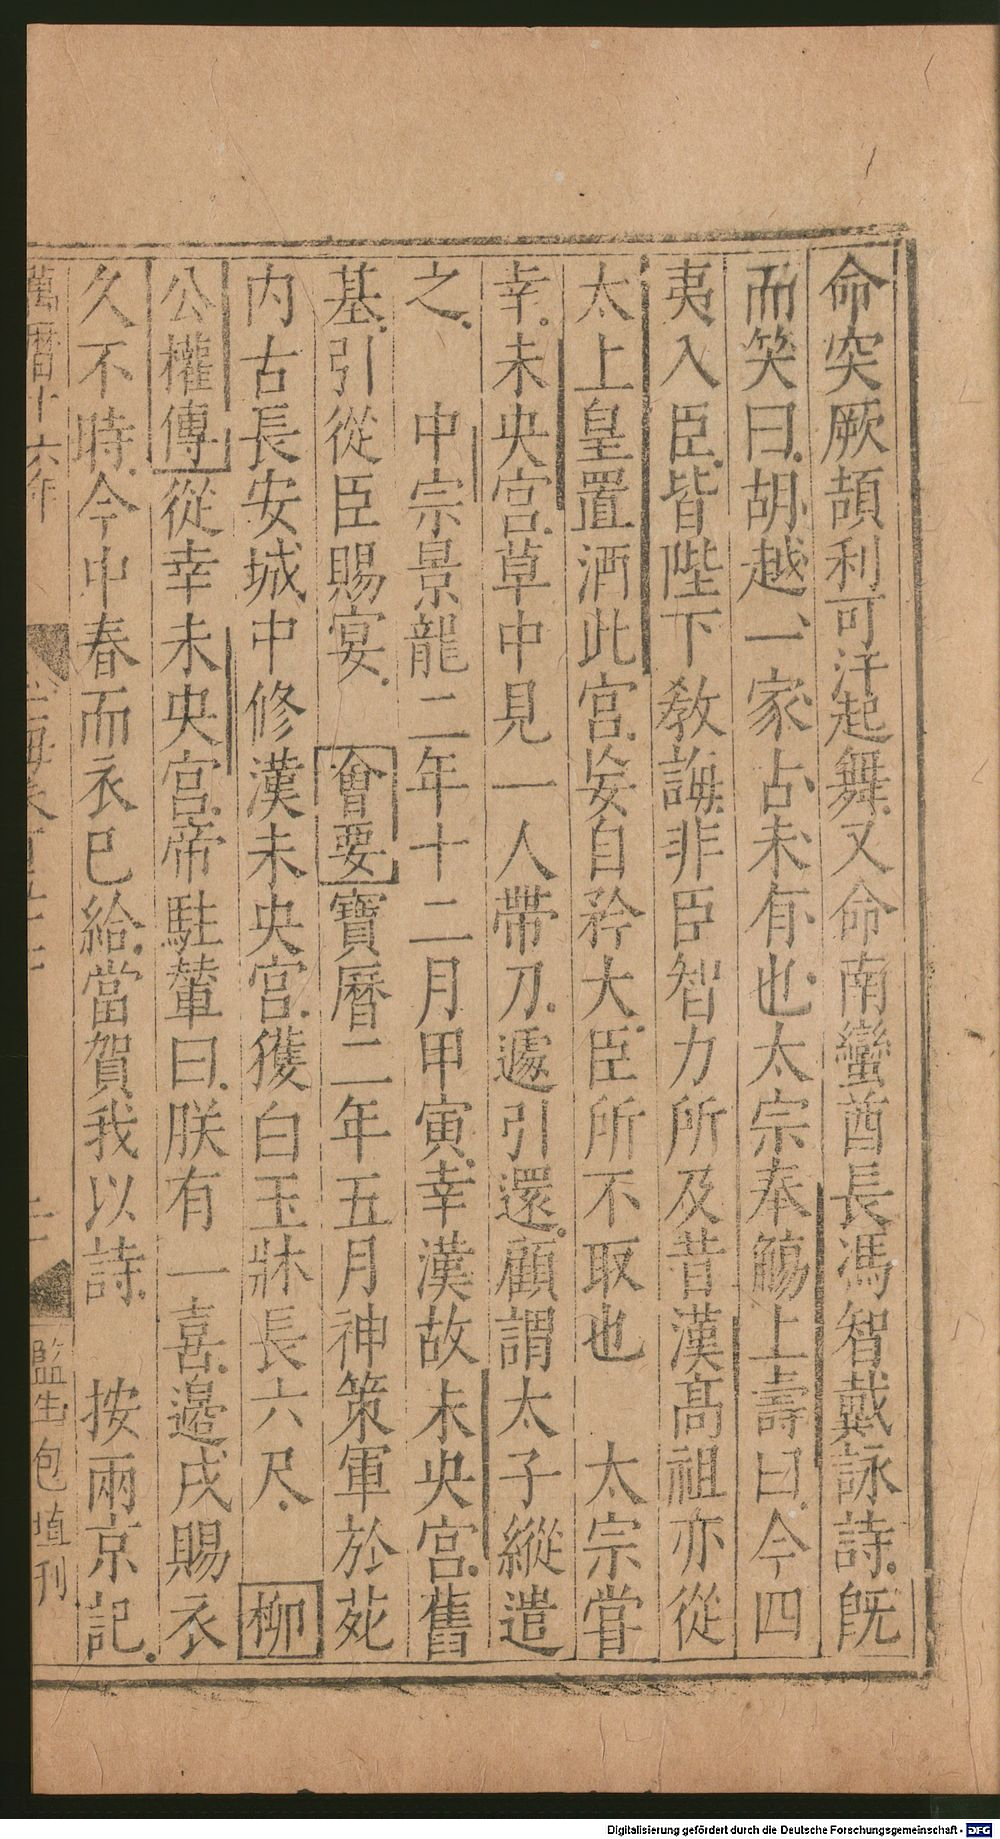 命突厥頡利可汗起舞又命南蠻酋長馮智戴詠詩旣
而笑曰胡越一家古未有也太宗奉觴上壽曰今四
夷入臣皆陛下教誨非臣智力所及昔漢高祖亦從
太上皇置酒此宮妄自矜大臣所不取也 太宗甞
幸未央宮草中見一人帶刀遽引還顧謂太子縱遣
之 中宗景龍二年十二月甲寅幸漢故未央宮舊
基引從臣賜宴 會要寶曆二年五月神策軍於苑
内古長安城中修漢未央宮獲白玉牀長六尺 柳
公權傳從幸未央宮帝駐輦曰朕有一喜邊戍賜衣
久不時今中春而衣已給當賀我以詩 按兩京記
萬曆十六年
玉海卷百五十
二
監生包填刊
Digitalisierung gefördert durch die Deutsche Forschungsgemeinschaft - DFG